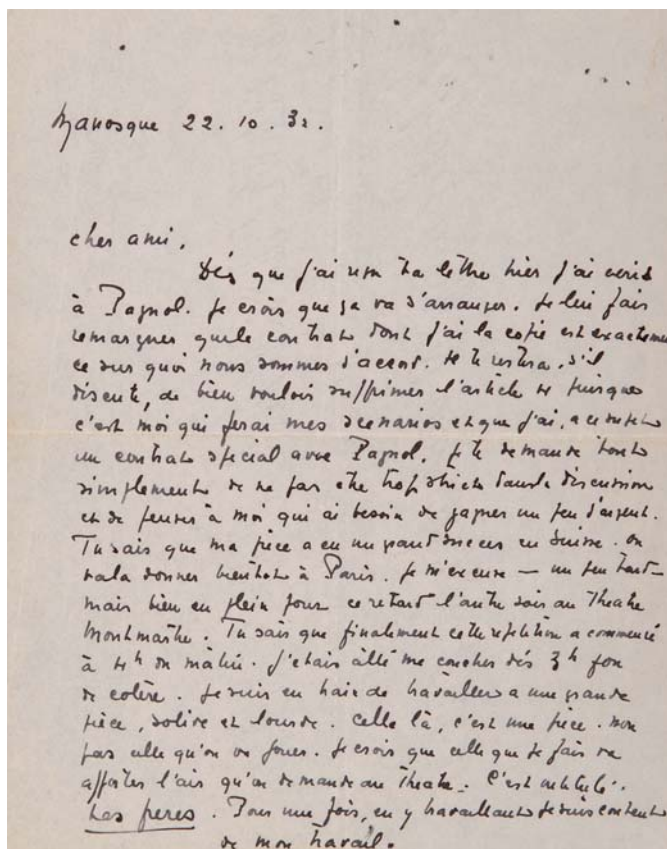 Manosque 22. 10. 32.
cher ami,
Dès que j'ai reçu ta lettre hier j'ai écrit
à Pagnol. Je crois que ça va s'arranger. Je lui fais
remarquer que le contrat dont j'ai la copie est exactement
ce sur quoi nous sommes d'accord. Je te
discute, de bien vouloir supprimer l'article puisque
c'est moi qui ferai mes scenarios et que j'ai, a ce sujet
un contrat special avec Pagnol. Je te demande tout
simplement de ne pas etre trop strict dans la discussion
et de penser à moi qui ai besoin de gagner un peu d'argent.
Tu sais que ma pièce a eu un grand succes en Suisse. on
va la donner bientot à Paris. Je m'excuse — un peu tard —
mais bien en plein pour ce retard l'autre soir au Theatre
Montmartre. Tu sais que finalement cette repetition a commencé
à 4h du matin. J'etais allé me coucher dès 3h fou
de colère. Je suis en train de travailler a une grande
pièce, solide et lourde. Celle là, c'est une pièce. non
pas celle qu'on va jouer. Je crois que celle que je fais va
apporter l'air qu'on demande au Theatre. C'est intitulé:
Les peres. Pour une fois, en y travaillant je suis content
de mon travail.